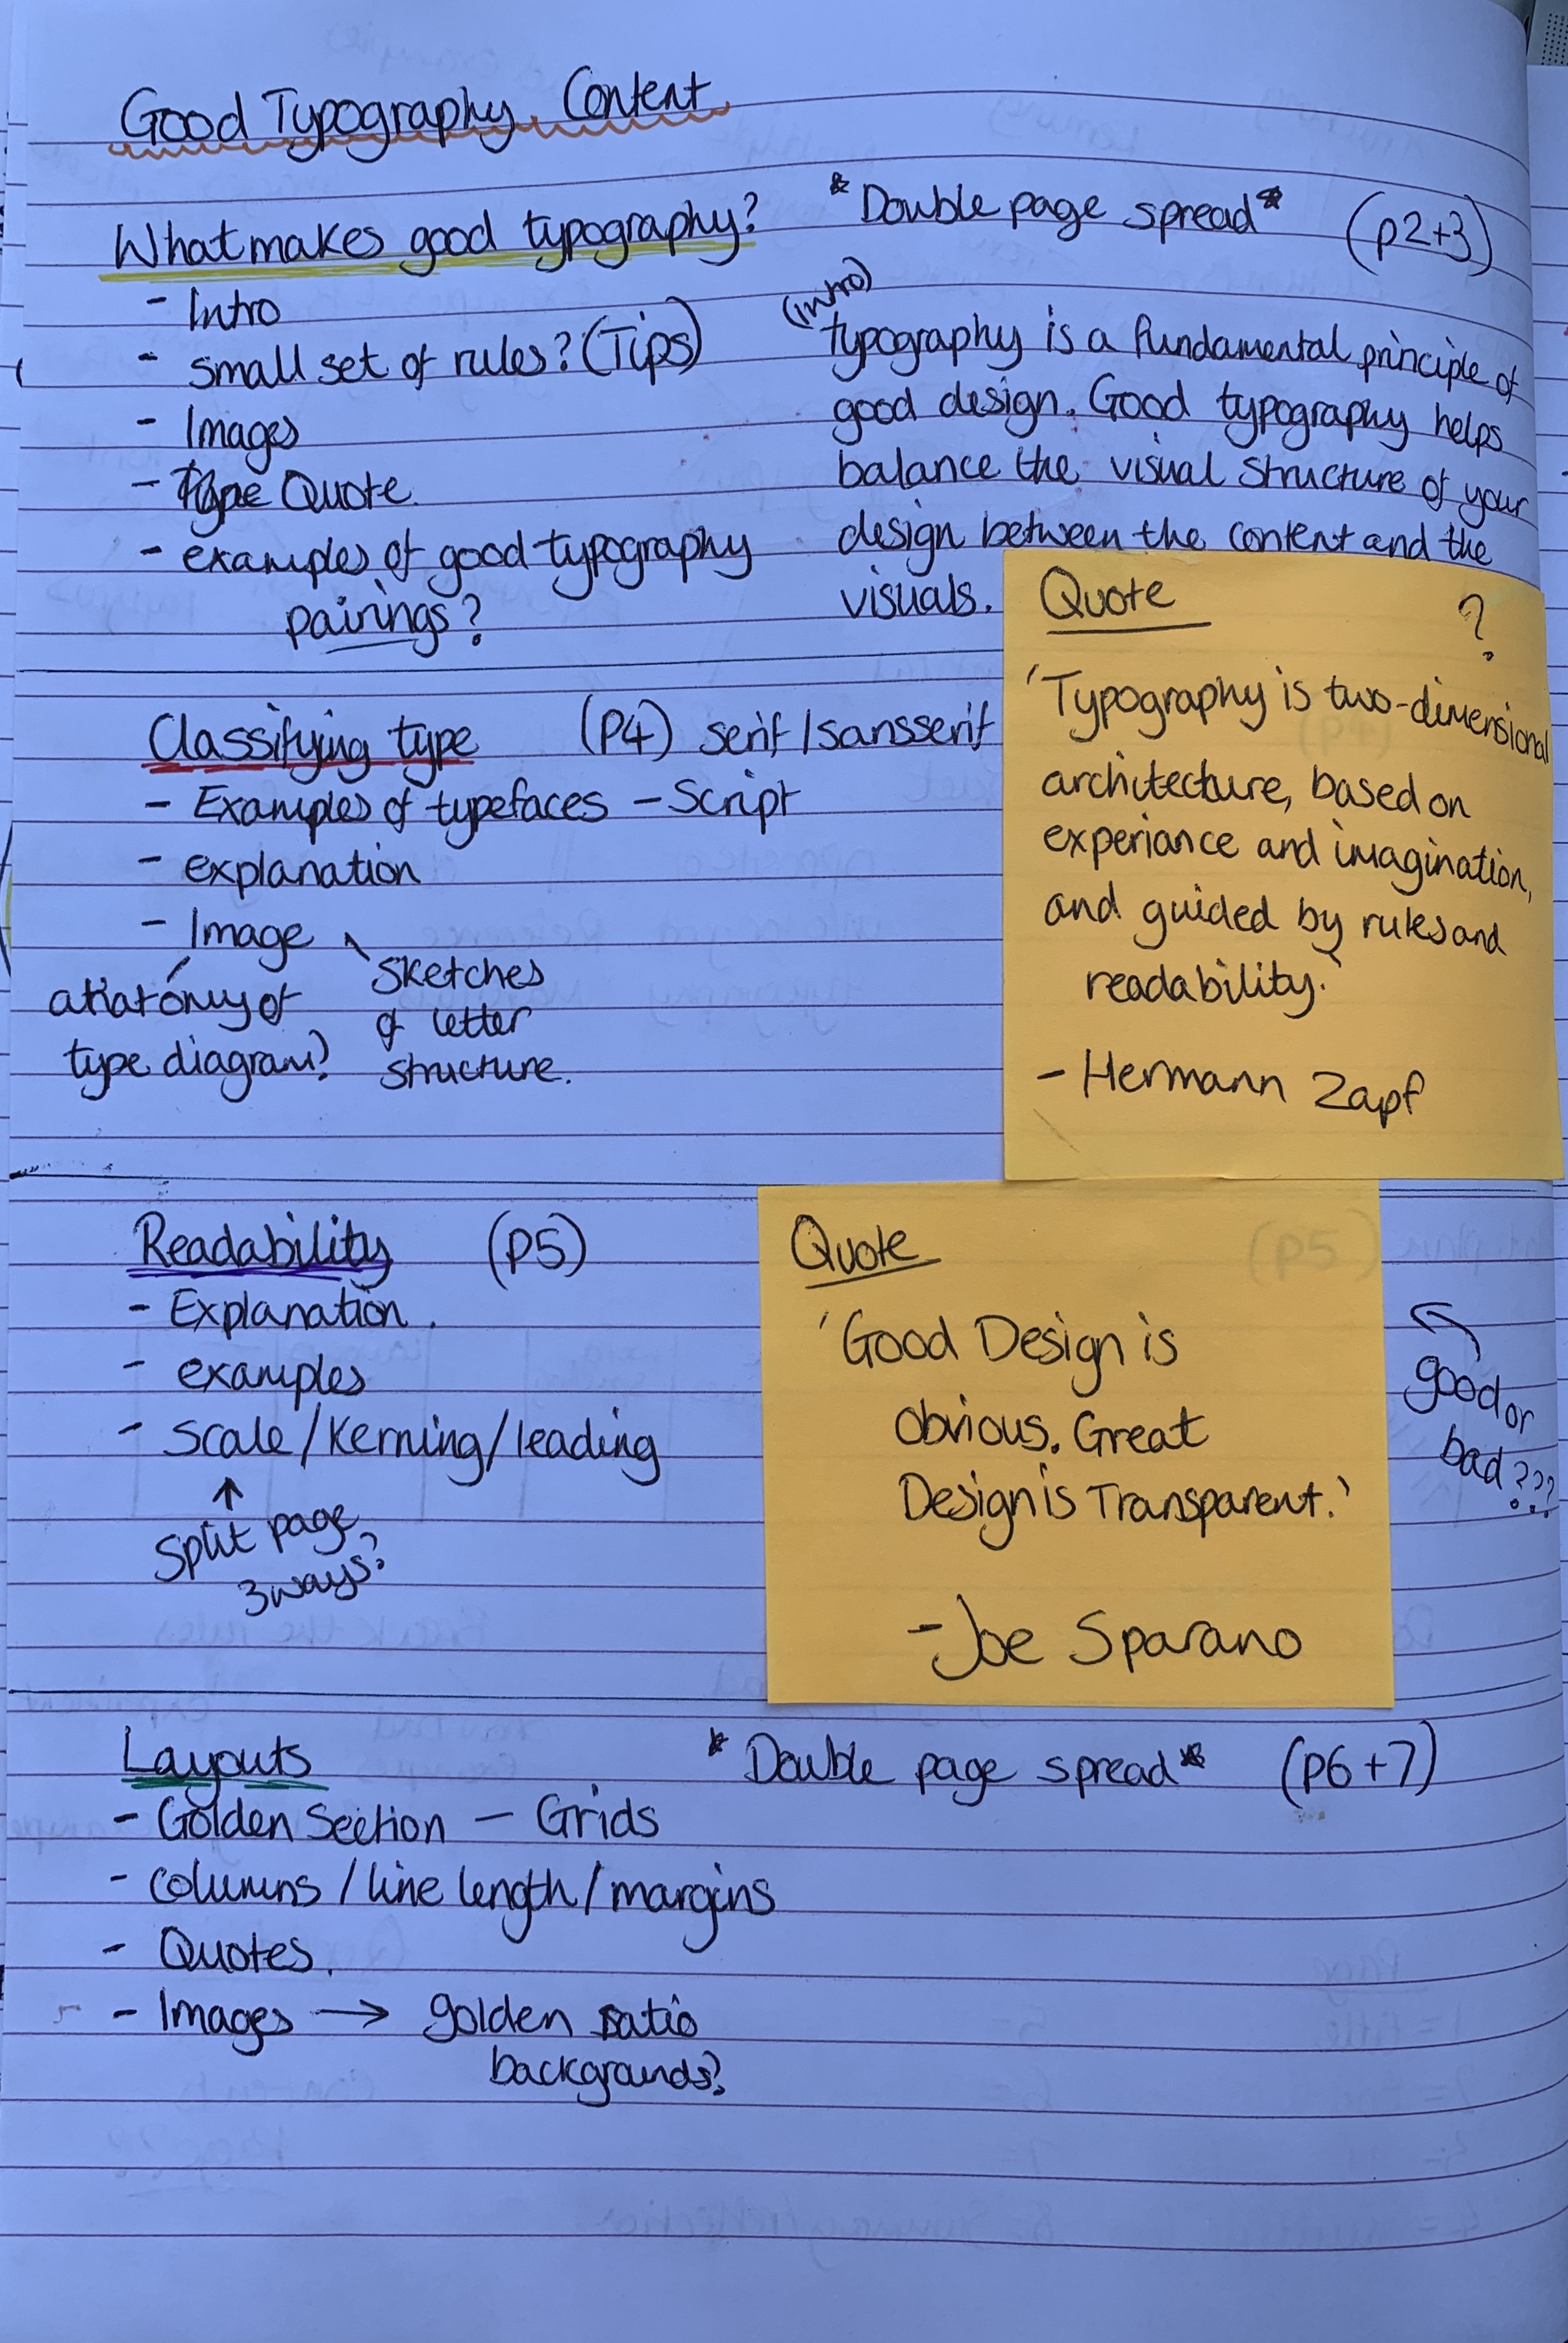 Good Typography Content
What makes good typography?
*Double page spread* (p2+3)
- Intro
- small set of rules? (Tips)
- Images
- Type Quote.
- examples of good typography
pairings?
(intro)
typography is a fundamental principle of
good design. Good typography helps
balance the visual structure of your
design between the content and the
visuals.
Quote ?
'Typography is two-dimensional
architecture, based on
experiance and imagination,
and guided by rules and
readability.'
- Hermann Zapf
Classifying type (P4) serif/sansserif
- Examples of typefaces - Script
- explanation
- Image
anatomy of
type diagram?
sketches
of letter
structure.
Readability (P5)
- Explanation.
- examples
- scale/kerning/leading
split page
3 ways?
Quote
'Good Design is
obvious. Great
Design is Transparent.'
- Joe Sparano
good or
bad???
Layouts *Double page spread* (p6+7)
- Golden Section - Grids
- columns/line length/margins
- Quotes.
- Images → golden ratio
backgrounds?